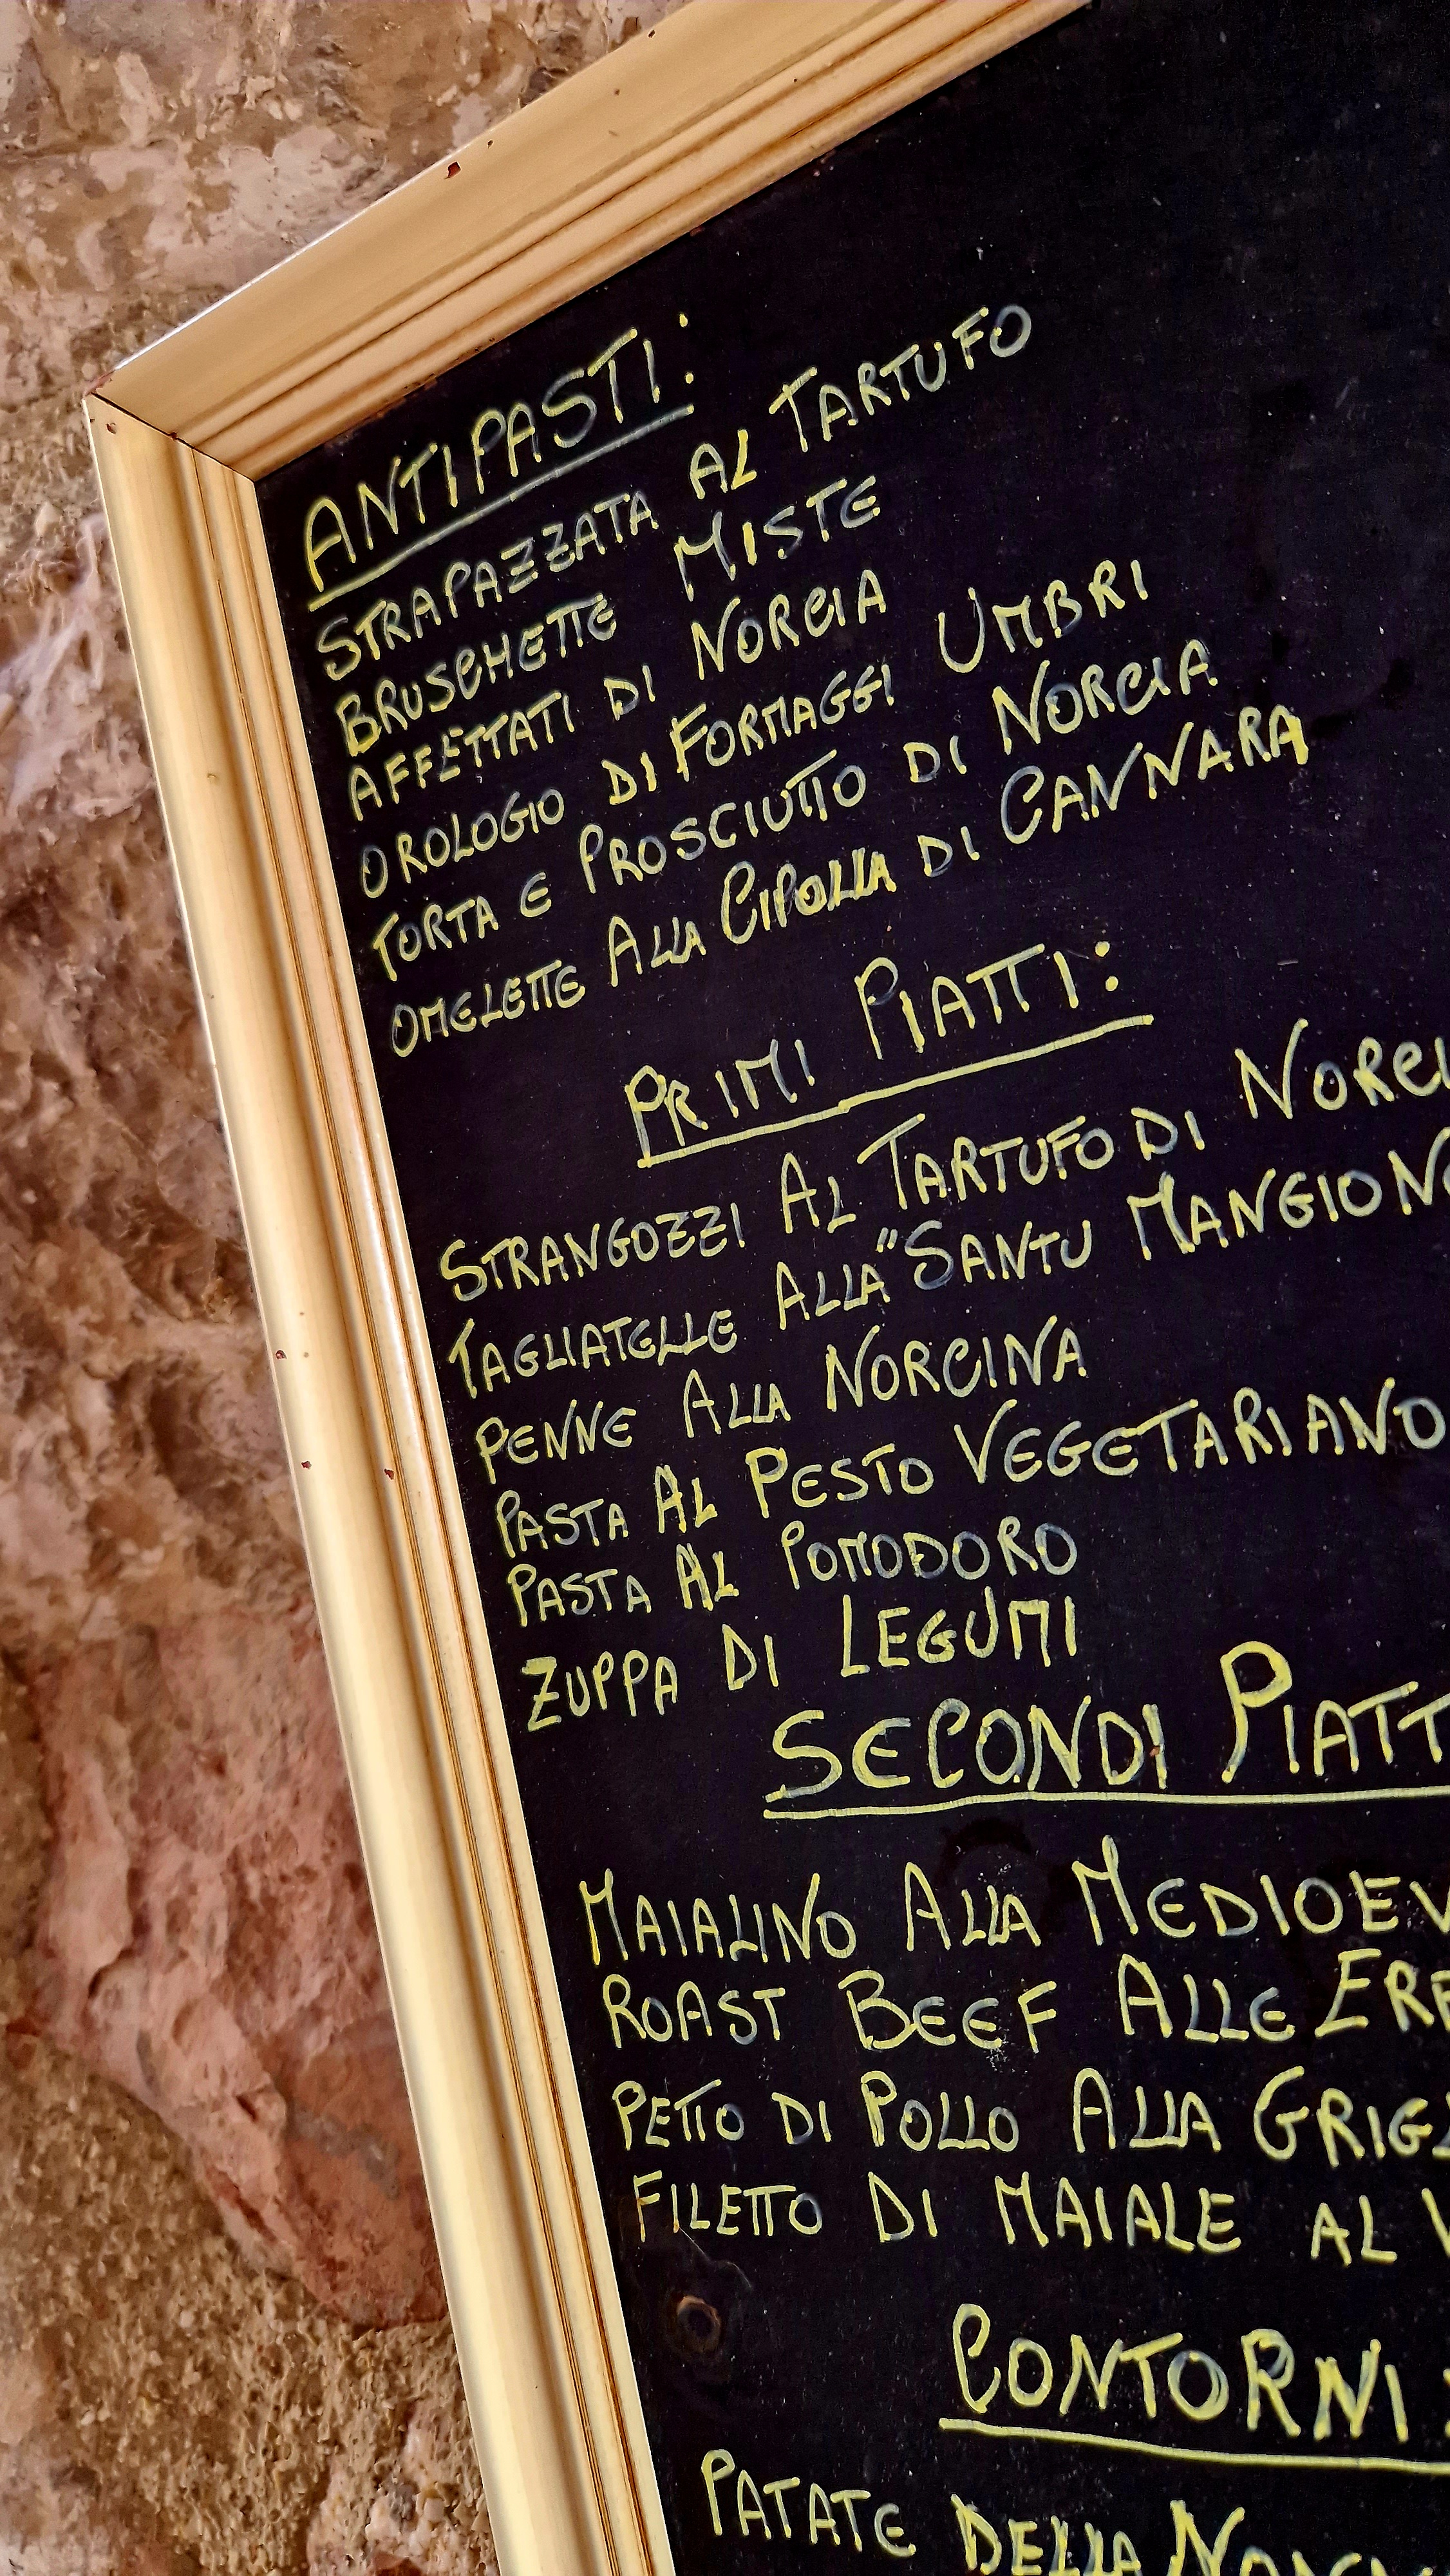 ANTIPASTI:
STRAPAZZATA AL TARTUFO
BRUSCHETTE MISTE
AFFETTATI DI NORCIA
OROLOGIO DI FORMAGGI UMBRI
TORTA E PROSCIUTTO DI NORCIA
OMELETTE ALLA CIPOLLA DI CANNARA
PRIMI PIATTI:
STRANGOZZI AL TARTUFO DI NORCI
TAGLIATELLE ALLA "SANTU MANGIONE
PENNE ALLA NORCINA
PASTA AL PESTO VEGETARIANO
PASTA AL POMODORO
ZUPPA DI LEGUMI
SECONDI PIATT
MAIALINO ALLA MEDIOEV
ROAST BEEF ALLE ERB
PETTO DI POLLO ALLA GRIGL
FILETTO DI MAIALE AL V
CONTORNI:
PATATE DELLA